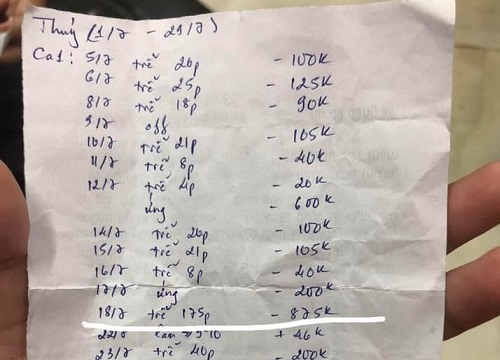 Thuý (1/7 - 29/7)
Ca1: 5/7 trễ 20p - 100k
6/7 trễ 25p - 125k
8/7 trễ 18p - 90k
9/7 off
10/7 trễ 21p - 105k
11/7 trễ 8p - 40k
12/7 trễ 4p - 20k
ứng - 600k
14/7 trễ 20p - 100k
15/7 trễ 21p - 105k
16/7 trễ 8p - 40k
17/7 ứng - 200k
18/7 trễ 175p - 875k
22/7 + 46k
23/7 trễ 40p - 200k